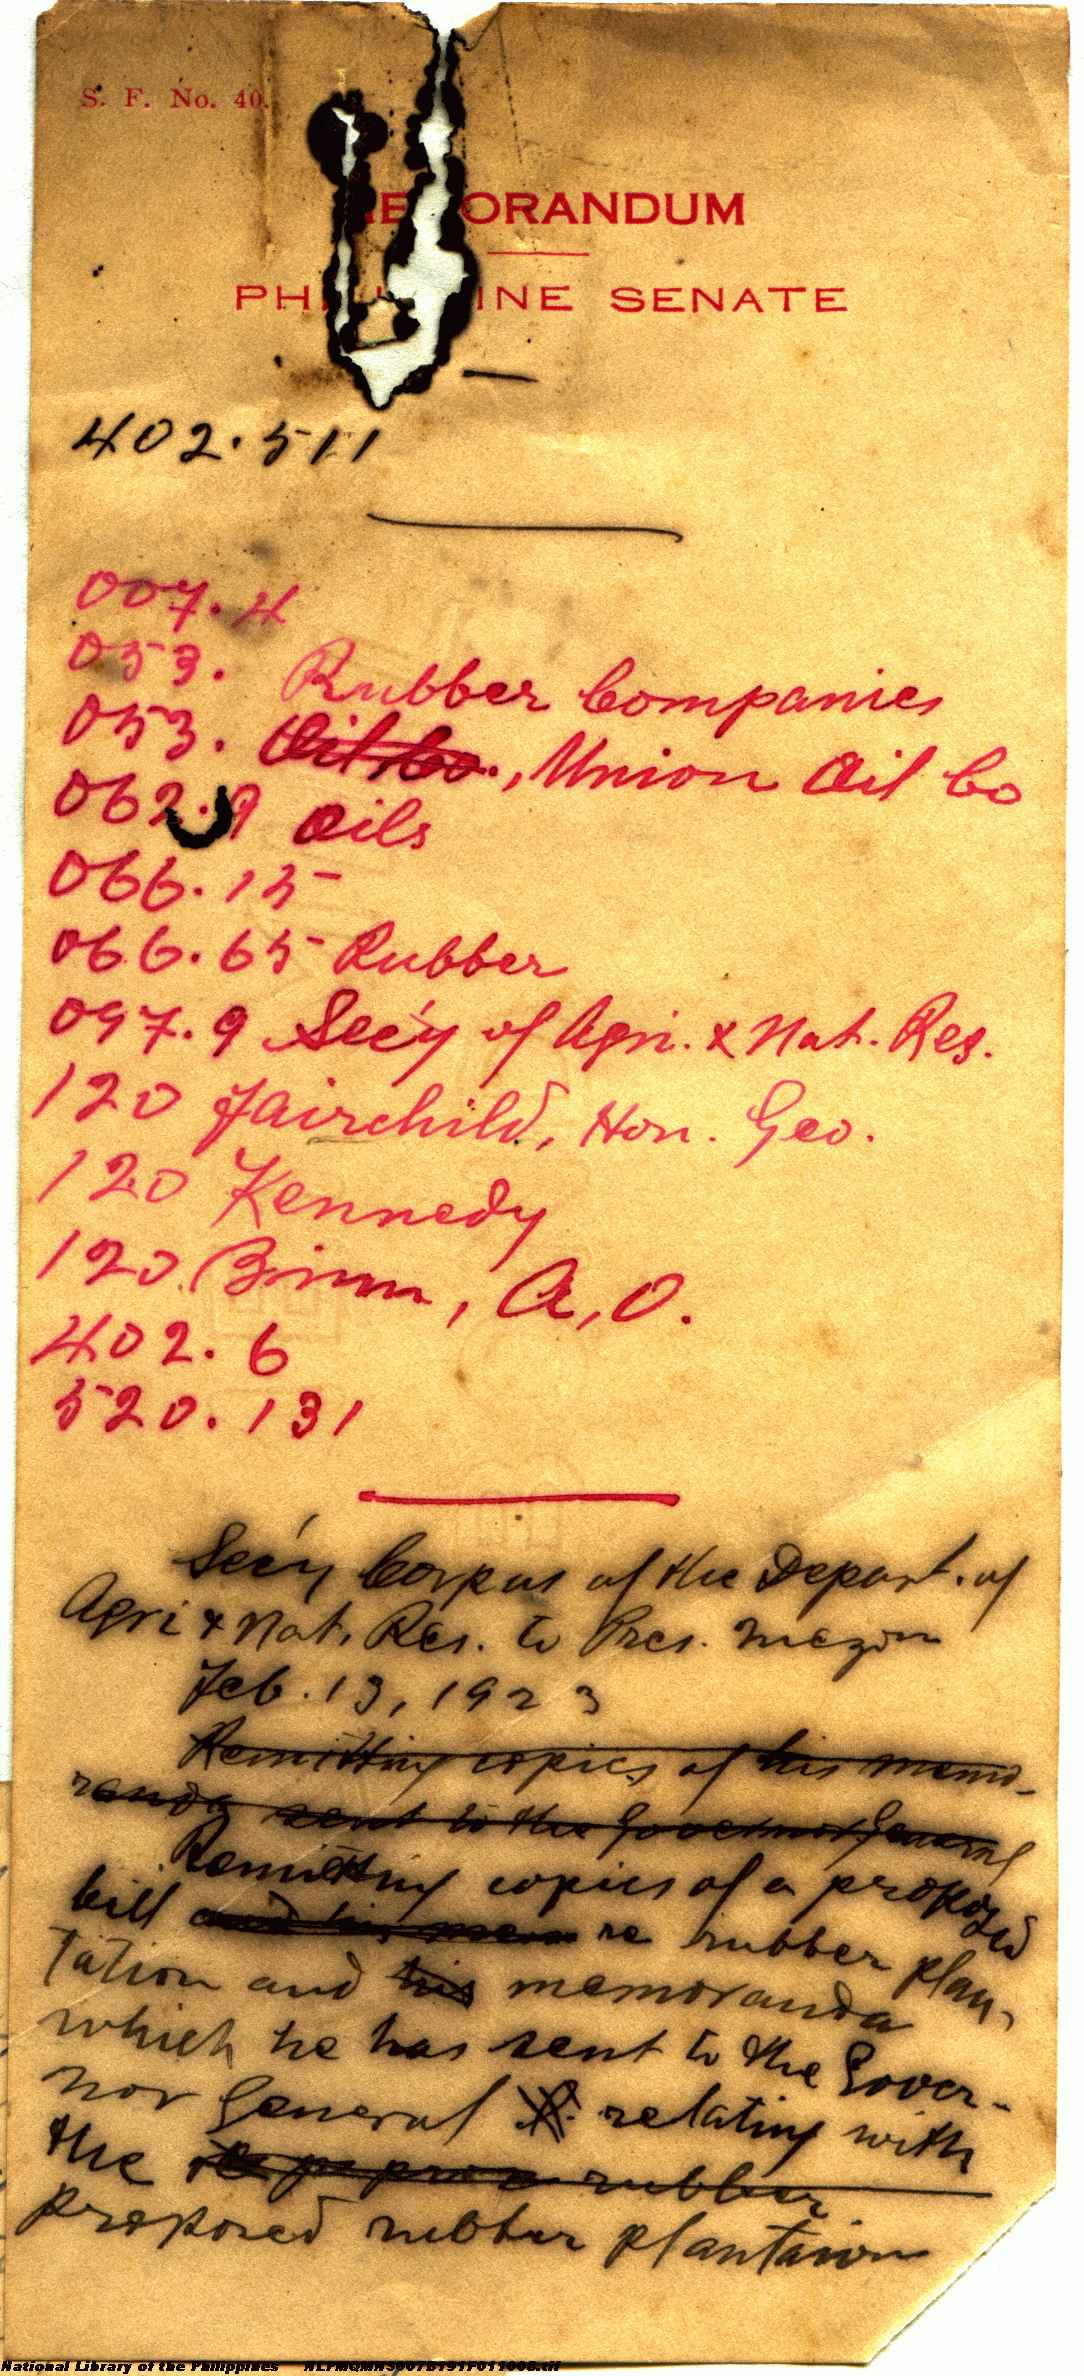 S. F. No. 40.
MEMORANDUM
PHILIPPINE SENATE
402.511
007.4
053. Rubber Companies
053. Oil Co., Union Oil Co
062.9 Oils
066.15
066.65 Rubber
097.9 Sec'y of Agri. & Nat. Res.
120 Fairchild, Hon. Geo.
120 Kennedy
120 Binm, A. O.
402.6
520.131
Sec'y Corpus of the Depart. of
Agri & Nat. Res. to Pres. Quezon
Feb. 13, 1923
Remitting copies of his memo-
randa sent to the Governor General
Remitting copies of a proposed
bill and his mem re rubber plan-
tation and his memoranda
which he has sent to the Gover-
nor General relating with
the rubber
proposed rubber plantaion
National Library of the Philippines